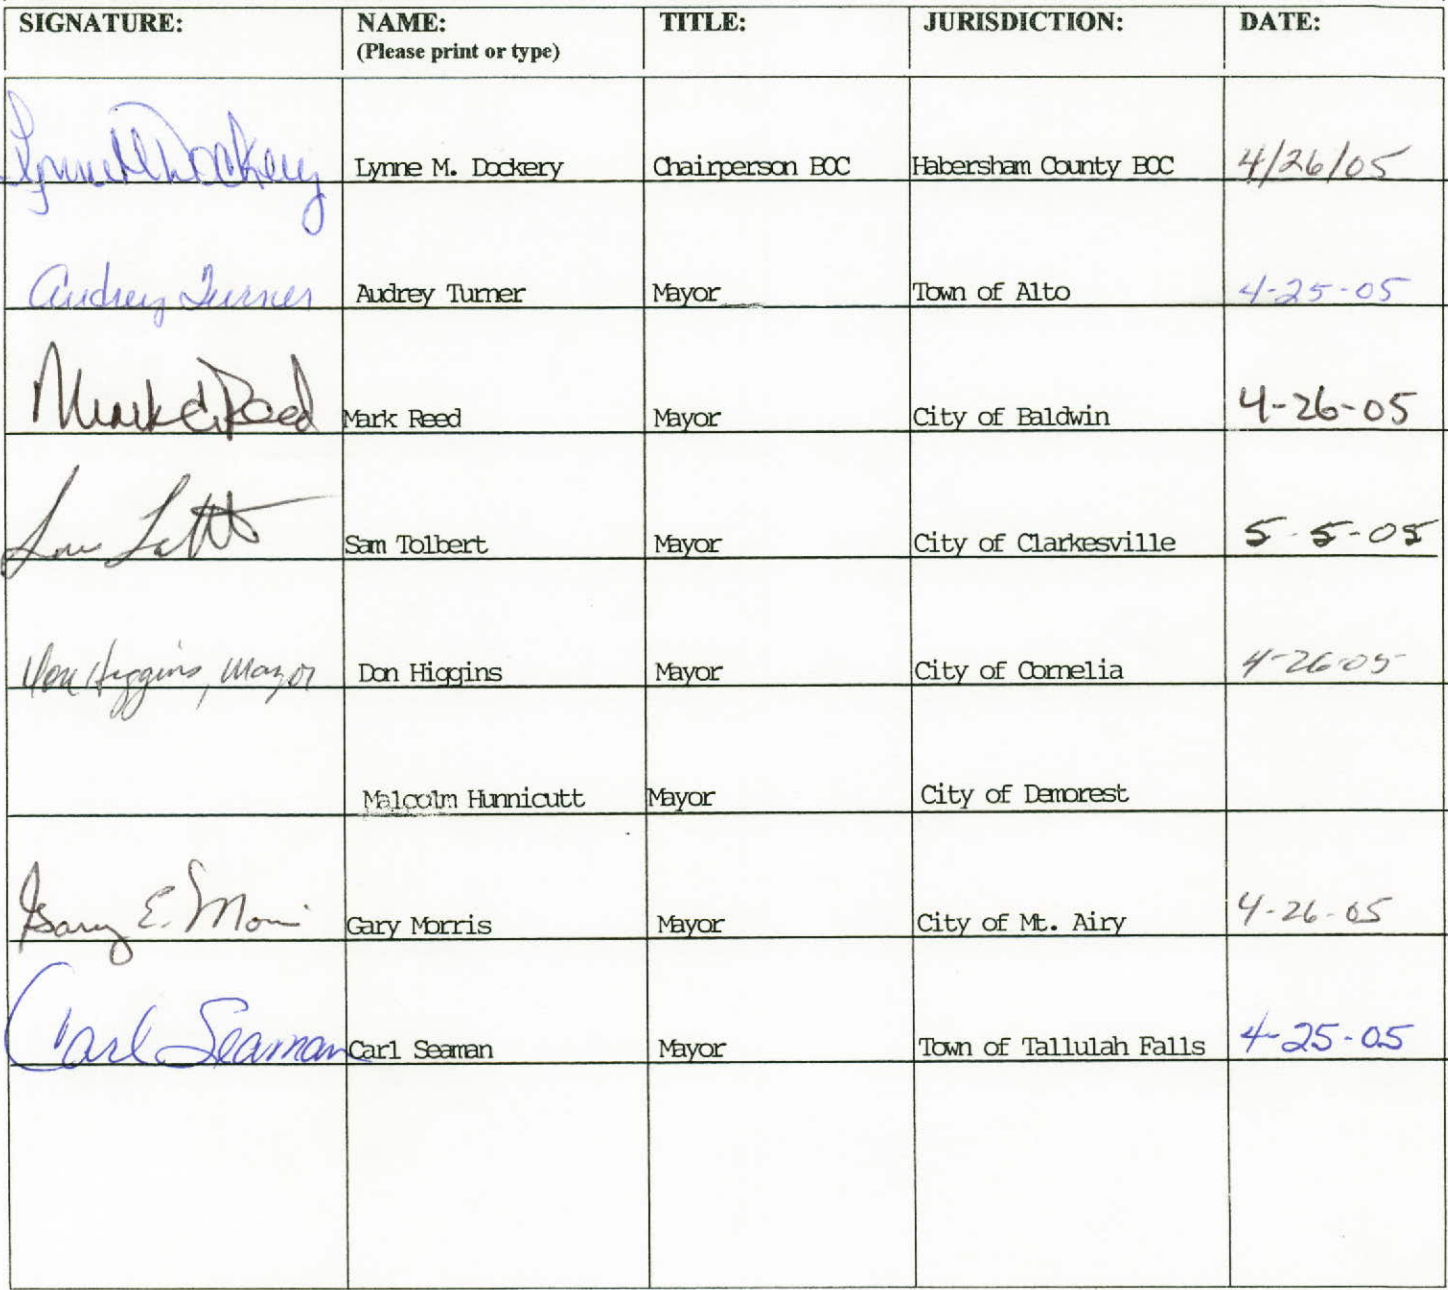 SIGNATURE: NAME: TITLE: JURISDICTION: DATE:
(Please print or type)
Lynne M Dockery Lynne M. Dockery Chairperson BOC Habersham County BOC 4/26/05
Audrey Turner Audrey Turner Mayor Town of Alto 4-25-05
Mark E. Reed Mark Reed Mayor City of Baldwin 4-26-05
Sam Tolbert Mayor City of Clarkesville 5-5-05
Don Higgins, Mayor Don Higgins Mayor City of Cornelia 4-26-05
Malcolm Hunnicutt Mayor City of Demorest
Gary E. Morris Gary Morris Mayor City of Mt. Airy 4-26-05
Carl Seaman Carl Seaman Mayor Town of Tallulah Falls 4-25-05